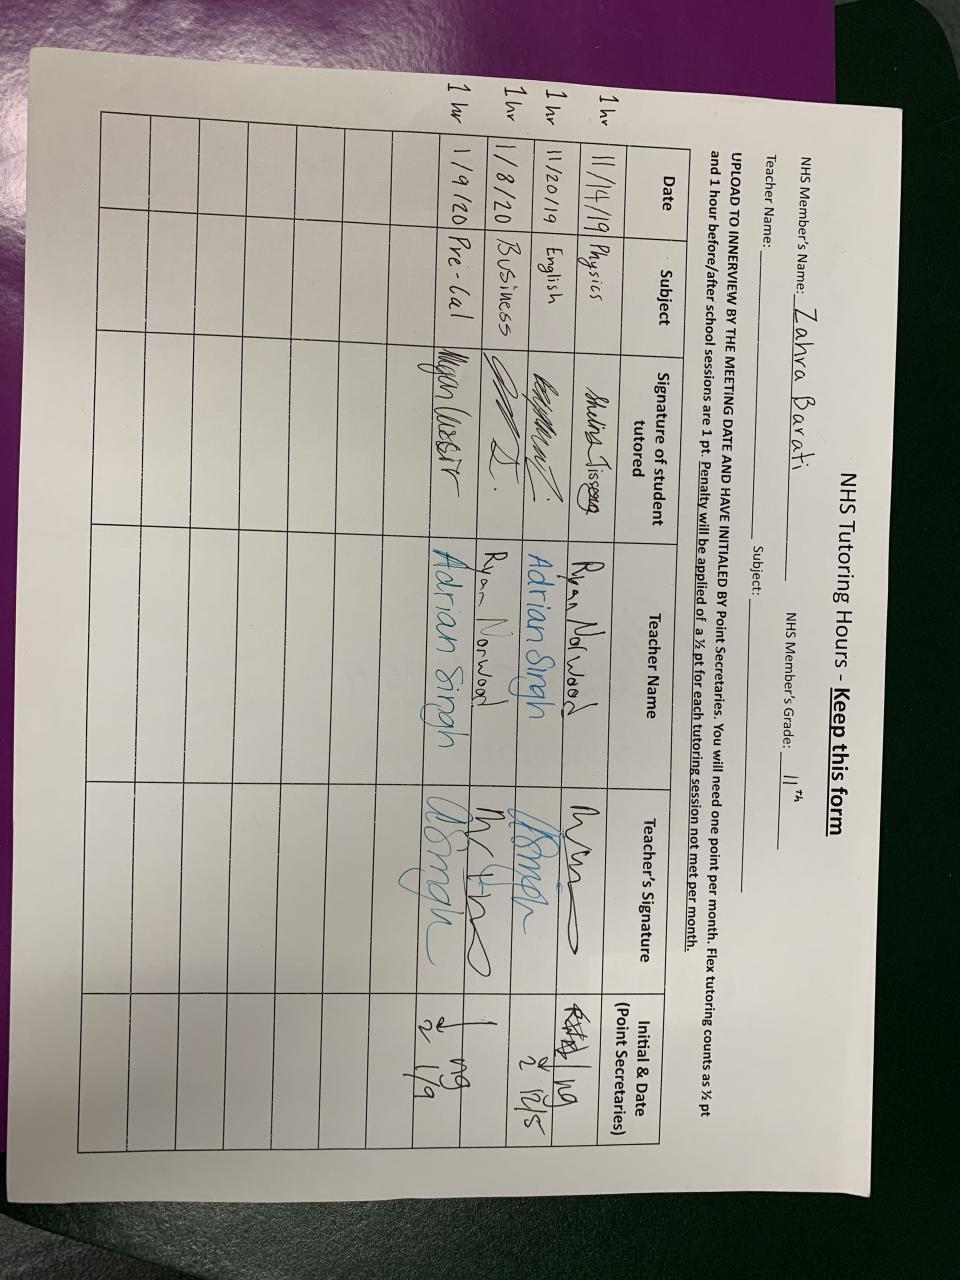 NHS Tutoring Hours - Keep this form
NHS Member's Name: Zahra Barati NHS Member's Grade: 11th
Teacher Name: Subject:
UPLOAD TO INNERVIEW BY THE MEETING DATE AND HAVE INITIALED BY Point Secretaries. You will need one point per month. Flex tutoring counts as ½ pt
and 1 hour before/after school sessions are 1 pt. Penalty will be applied of a ½ pt for each tutoring session not met per month.
Date Subject Signature of student tutored Teacher Name Teacher's Signature Initial & Date (Point Secretaries)
1 hr 11/14/19 Physics Ryan Norwood ng
1 hr 11/20/19 English Adrian Singh ASingh 2 12/5
1 hr 1/8/20 Business Ryan Norwood
1 hr 1/9/20 Pre-Cal Adrian Singh ASingh 2 ng 1/9